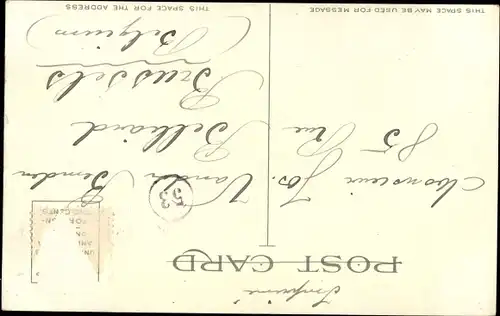 Imprimé
POST CARD
Monsieur Jos. Vanden Bemden
53
85 Rue Belliard
Brussels
(Belgium)
THIS SPACE MAY BE USED FOR MESSAGE
THIS SPACE FOR THE ADDRESS